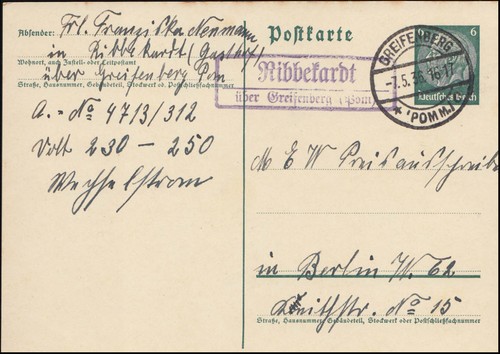 Absender: Frl. Franziska Neumann
in Ribbekardt (Gasthof)
Wohnort, auch Zustell- oder Leitpostamt
über Greifenberg Pom
Straße, Hausnummer, Gebäudeteil, Stockwerk od. Postschließfachnummer
A.= No 4713/312
Volt 230 - 250
Wechselstrom
Postkarte
Ribbekardt
über Greifenberg (Pom)
GREIFENBERG
-7.5.36.16-17
* (POMM.)
6
Deutsches Reich
M E W Preisausschreiben
in Berlin W. 62
Keithstr. No 15
Straße, Hausnummer, Gebäudeteil, Stockwerk oder Postschließfachnummer